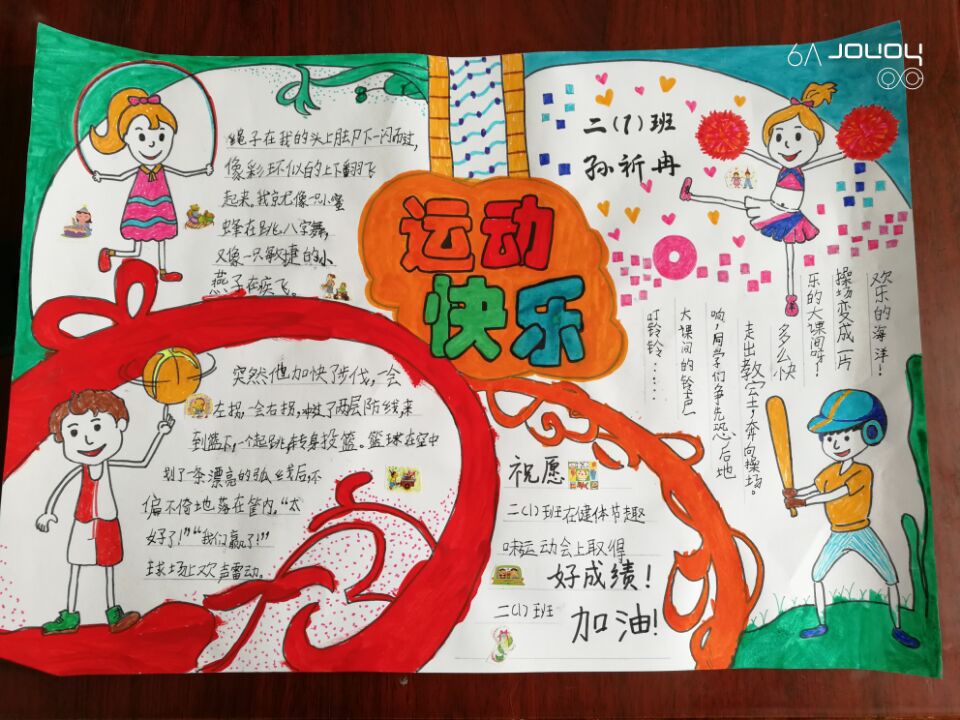 6A JOVOY
二(1)班
孙祈冉
运动
快乐
绳子在我的头上脚下一闪而过,
像彩环似的上下翻飞
起来,我就像一只小蜜
蜂在跳八字舞,
又像一只敏捷的小
燕子在疾飞。
叮铃铃……
大课间的铃声
响,同学们争先恐后地
走出教室,奔向操场。
多么快
乐的大课间呀!
操场变成一片
欢乐的海洋!
突然他加快了步伐,一会
左拐,一会右拐,冲破了两层防线来
到篮下,一个起跳,转身投篮。篮球在空中
划了一条漂亮的弧线后,不
偏不倚地落在筐内。“太
好了!”“我们赢了!”
球场上欢声雷动。
祝愿
二(1)班在健体节趣
味运动会上取得
好成绩!
二(1)班
加油!